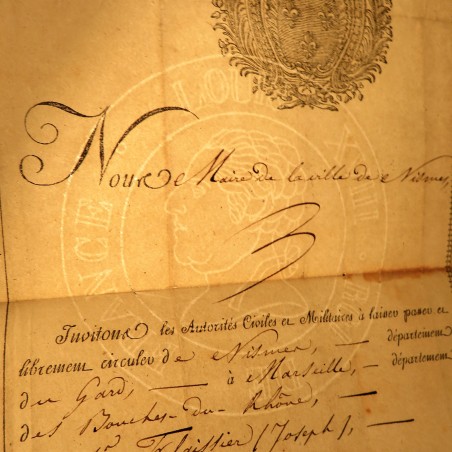 LOUIS XVIII
FRANCE
Nous Maire de la ville de Nismes,
Invitons les Autorités Civiles et Militaires à laisser passer et
librement circuler de Nismes, — département
du Gard, — à Marseille, — département
des Bouches-du-Rhône, —
(Joseph), —